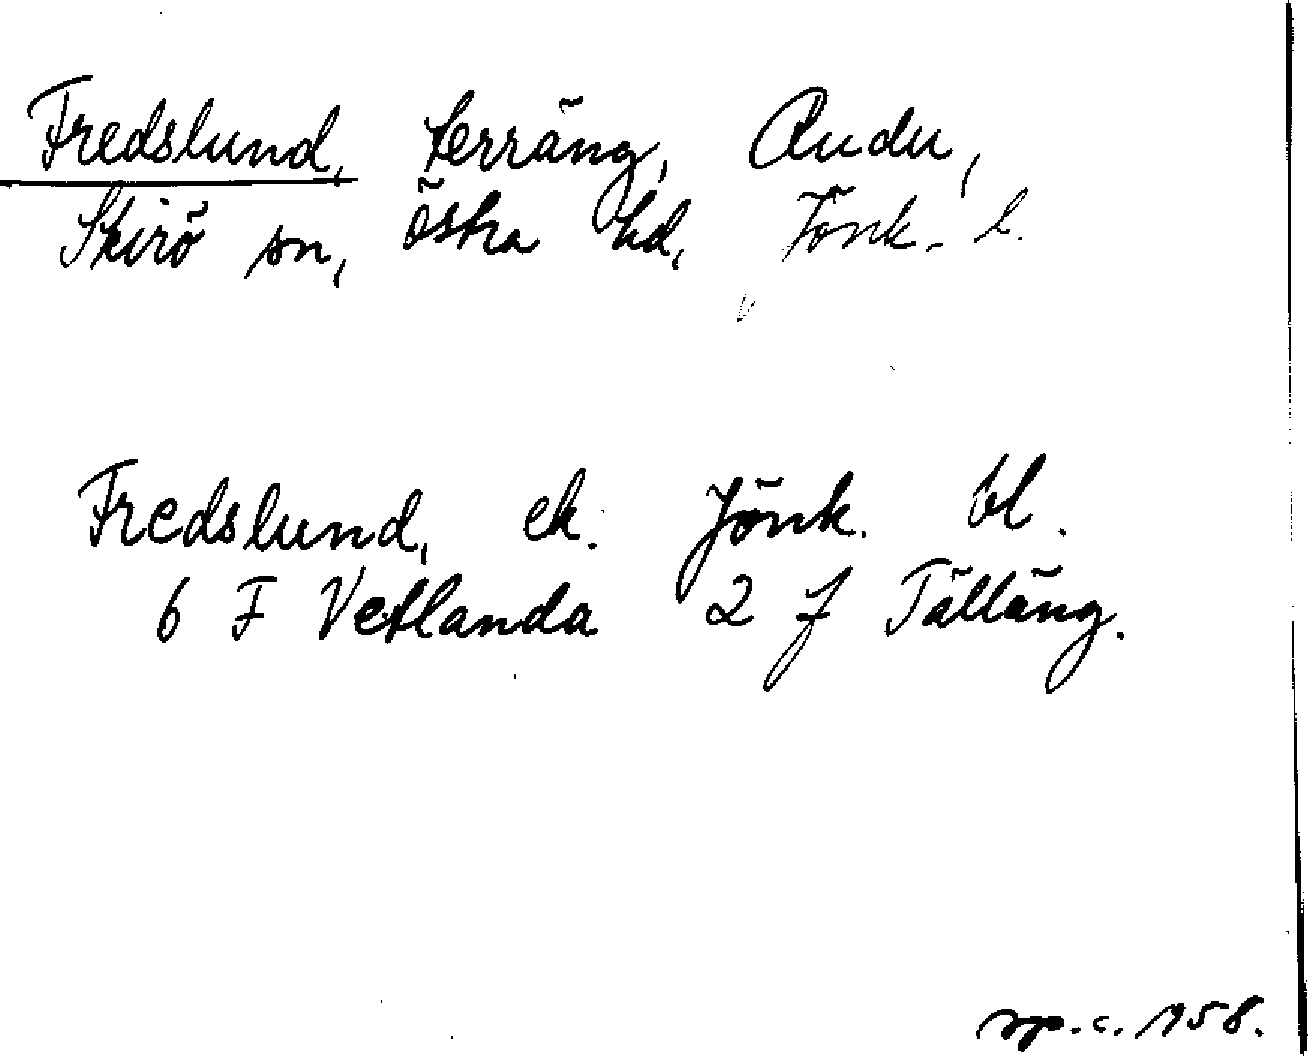 Fredslund, terräng, Rudu,
Skirö sn, Östra hd, Jönk. l.
Fredslund, ek. Jönk. bl.
6 F Vetlanda 2 f Tälläng.
op. c. 1958.